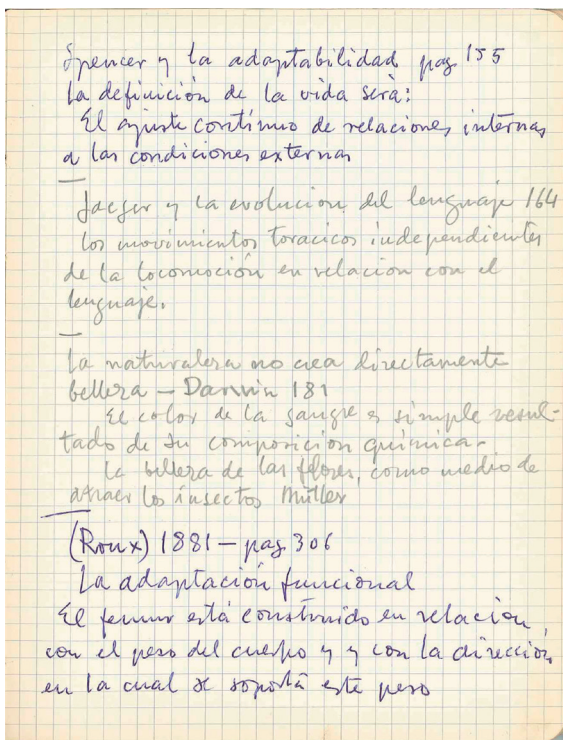 Spencer y la adaptabilidad pag 155
La definición de la vida será:
El ajuste contínuo de relaciones internas
a las condiciones externas
Jaeger y la evolucion del lenguaje 164
los movimientos toracicos independientes
de la locomoción en relacion con el
lenguaje.
La naturaleza no crea directamente
belleza – Darwin 181
El color de la sangre es simple resul-
tado de su composición química.
La belleza de las flores, como medio de
atraer los insectos Müller
(Roux) 1881 – pag 306
La adaptación funcional
El femur está construido en relacion
con el peso del cuerpo y y con la dirección
en la cual se soporta este peso